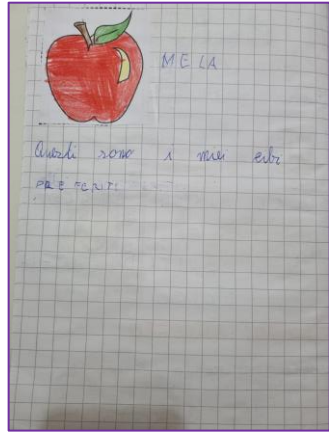 MELA
Questi sono i miei cibi
PREFERITI